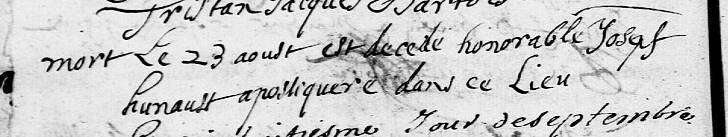 Tristan Jacques
mort Le 23 aoust est decede honorable Josepf
hunault apostiquere dans ce Lieu
Jour de septembre